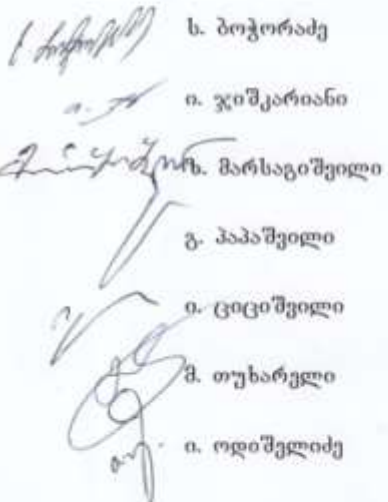 ს. ბოჭორაძე
ი. ჯიშკარიანი
ზ. მარსაგიშვილი
გ. პაპაშვილი
ი. ციციშვილი
მ. თუხარელი
ი. ოდიშელიძე